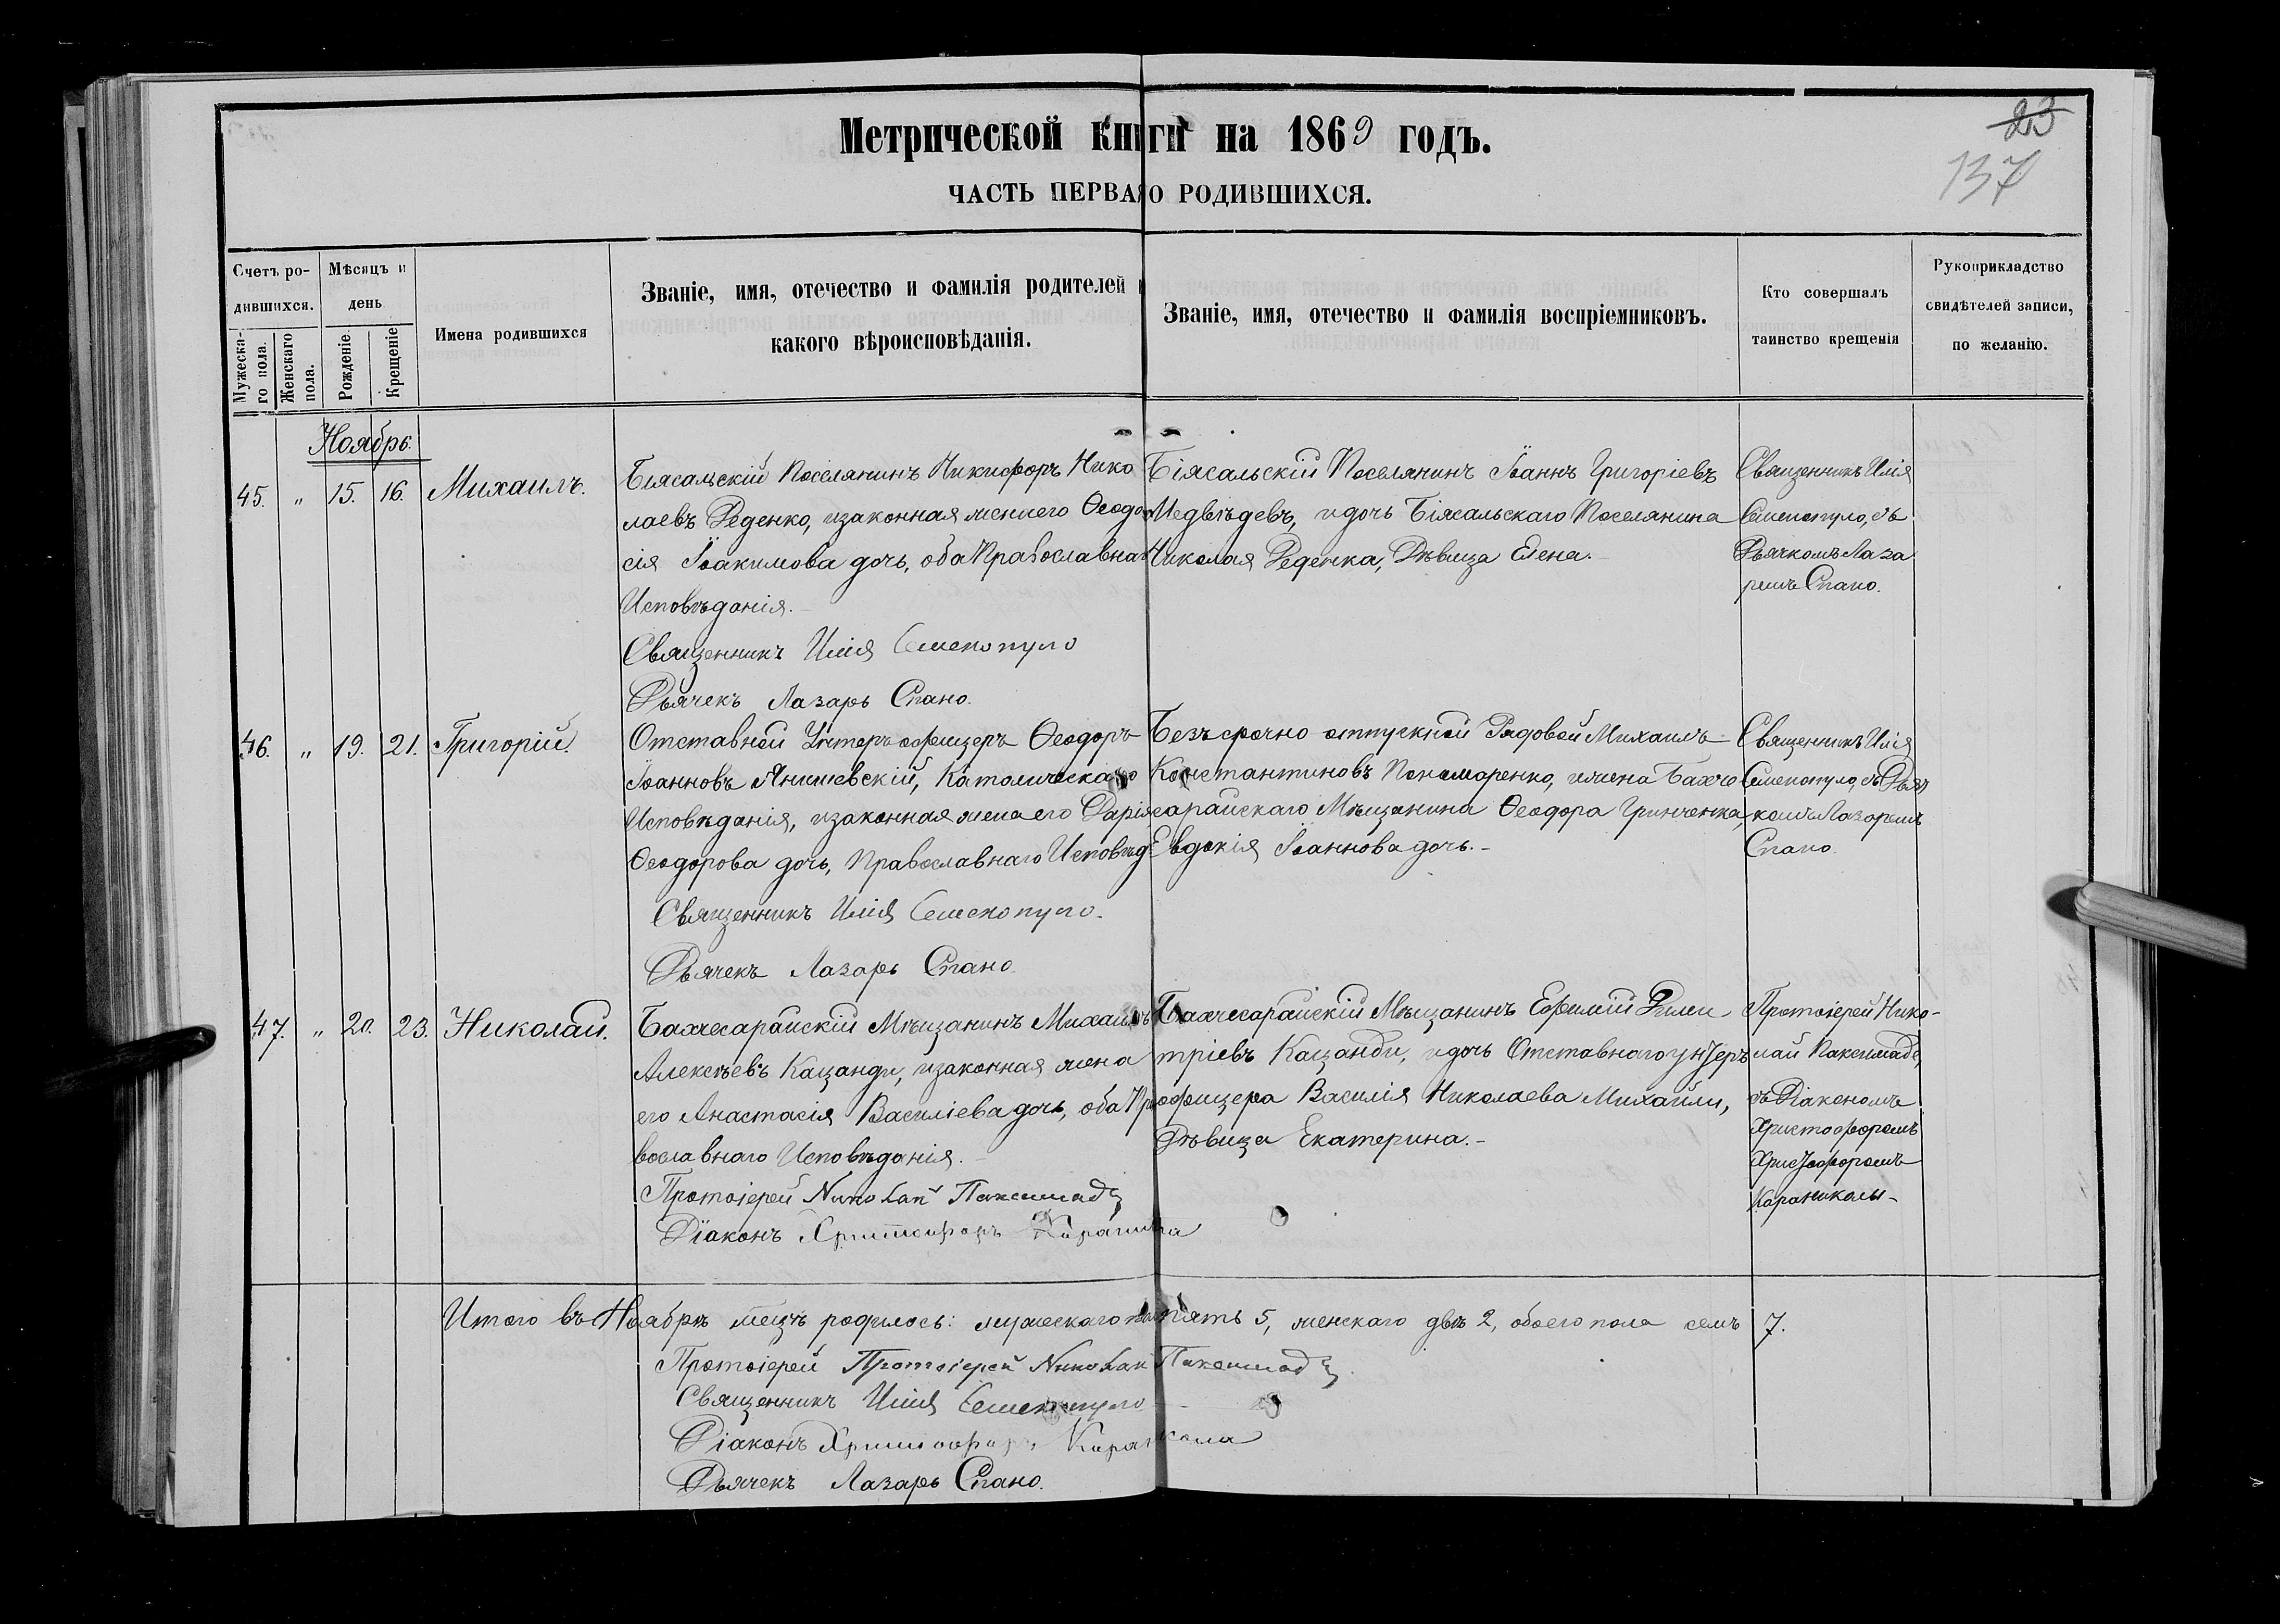 Метрической книги на 1869 годъ.
23
137
ЧАСТЬ ПЕРВАЯ О РОДИВШИХСЯ.
Счетъ ро-
дившихся.
Мужеска-
го пола.
Женскаго
пола.
Мѣсяцъ и
день
Рожденіе.
Крещеніе
Имена родившихся
Званіе, имя, отечество и фамилія родителей и
какого вѣроисповѣданія.
Званіе, имя, отечество и фамилія воспріемниковъ.
Кто совершалъ
таинство крещенія
Рукоприкладство
свидѣтелей записи,
по желанію.
Ноябрь.
45. " 15. 16. Михаилъ.
Біясальскій Поселянинъ Никифоръ Нико
лаевъ Реденко, изаконная жена его Ѳеодо
сія Іоакимова дочь, оба Православна
Исповѣданія.-
Священникъ Илія Семенопуло
Дьячекъ Лазарь Спано.
Біясальскій Поселянинъ Іоаннъ Григоріевъ
Медвѣдевъ, идочь Біясальскаго Поселянина
Николая Реденка, Дѣвица Елена.-
Священникъ Илія
Семенопуло, съ
Дьячкомъ Лаза
ремъ Спано.
46. " 19. 21. Григорій.
Отставной Унтеръ офицеръ Ѳеодоръ
Іоанновъ Янишевскій, Католическаго
Исповѣданія, изаконная жена его Дарія
Ѳеодорова дочь, Православнаго Исповѣд
Священникъ Илія Семенопуло.
Дьячекъ Лазарь Спано.
Безъ срочно отпускной Рядовой Михаилъ
Константиновъ Пономаренко, ижена Бахче
сарайскаго Мѣщанина Ѳеодора Гринченка,
Евдокія Іоаннова дочь.-
Священникъ Илія
Семенопуло, съ Дьяч
комъ Лазаремъ
Спано.
47. " 20. 23. Николай.
Бахчесарайскій Мѣщанинъ Михаилъ
Алексѣевъ Кацанди, изаконная жена
его Анастасія Василіева дочь, оба Пра
вославнаго Исповѣданія.-
Протоіерей Николай Паксимадз
Діаконъ Христофоръ Караникола
Бахчесарайскій Мѣщанинъ Ефимій Дими
тріевъ Кацанди, идочь Отставнаго унтеръ
офицера Василія Николаева Михайли,
Дѣвица Екатерина.-
Протоіерей Нико-
лай Паксимадз,
съ Діакономъ
Христофоромъ
Христофоромъ
Караниколы-
Итого въ Ноябрѣ мѣцѣ родилось: мужескаго пола пять 5, женскаго двѣ 2, обоего пола семь 7.
Протоіерей Протоіерей Николай Паксимадз
Священникъ Илія Семенопуло
Діаконъ Христофоръ Караникола
Дьячекъ Лазарь Спано.